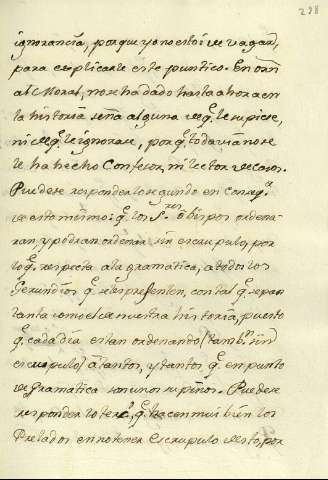 298
ignorancia, porque yo no estoi de vagar,
para explicarle este puntico. En orn
al Moral, no se ha dado hasta ahora en
la historia seña alguna de q.e lo supiese,
ni de q.e le ignorase, por q.e todavia no se
le ha hecho Confesor, ni Rector de casos.
Puedese responder lo segundo en conseq.a
de esto mismo: q.e los S.res obispos ordena-
ran, y podran ordenar sin escrupulo, por
lo q.e respecta a la gramatica, a todos los
Gerundios q.e se les presenten, con tal q.e sepan
tanta como el de nuestra historia, puesto
q.e cada dia estan ordenando (tamb.n sin
escrupulo) a tantos, y tantos q.e en punto
de Gramatica son unos supinos. Puedese
responder lo terc.o q.e hacen mui bien los
Prelados en no tener escrupulo de esto, por